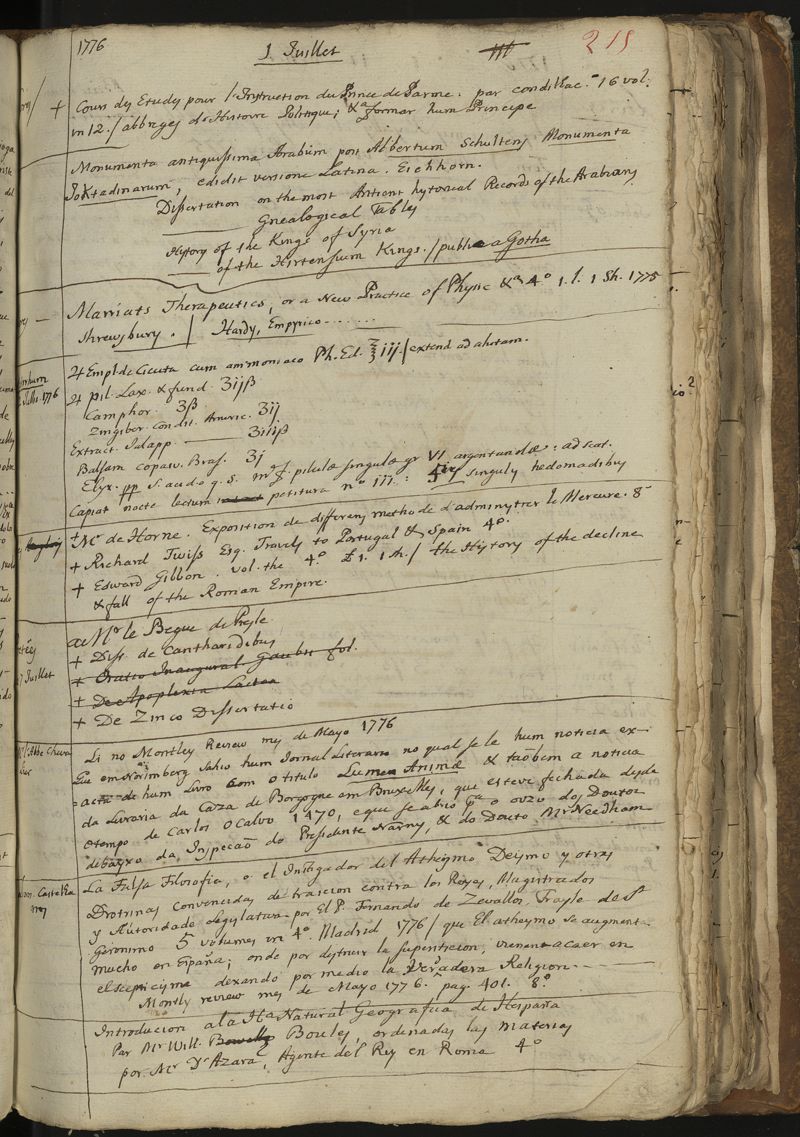 1776
1 Juillet
219
+ Cours des Etudes pour l'Instruction du Prince de Parme. par condillac. 16 vol.
in 12. / abbreges de Histoire Politique; &ª formar hum Principe
Monumenta antiquissima Arabum post Albertum Schultens Monumenta
Joktadinarum, edidit versione Latina. Eichhorn.
Dissertation on the most Antient hystorical Records of the Arabians
Gnealogical Tables
History of the Kings of Syria
of the Hirtensium Kings. / publ a Gotha
Marriats Therapeutics, or a New Practice of Physic &ª 4º 1. l. 1 Sh. 1775
Shrewsbury. / Hardy, Empyrico
♃ Empl de Cicuta cum ammoniaco Ph. Ed. ℥ iij. / extend ad alutam.
Julho 1776
♃ pil. Lax. & fund. ʒijβ
Camphor. ʒβ
Zingiber condit. Americ. ʒij
Extract. Jalapp ʒiiiβ
Balsam copaiv. Bras. ʒj
Elyx. pp s. acido q. s. m. f. pilulæ singulæ gr VI argentandæ: ad scat.
Capiat nocte lectum petitura nº iij: singulis hedomadibus
+ Mr. de Horne. Exposition de differens methode d'adminystrer le Mercure. 8º
+ Richard Twiss Esq. Travels to Portugal & Spain 4º.
+ Edward Gibbon. vol. the 4º £1. 1 sh. / the History of the decline
& fall of the Roman Empire.
Juillet
a Mr le Begue de Presle
+ Diss. de Cantharidibus
+ Oratio Inaugural Gaubii fol.
+ De Apoplexia Lactea
+ De Zinco Dissertatio
l'Abbe
Li no Montley Review mes de Mayo 1776
Que em Norimberg sahio hum Jornal Literario no qual se le hum noticia ex-
acta de hum Livro com o titulo Lumen Animæ & taõbem a noticia
da Livraria da Caza de Borgogne em Bruxelles, que esteve fechada desde
o tempo de Carlos o Calvo 1470, e que se abrio
debayxo da Inspecaõ do Presidente Narny, & do Douto Mr Needham
La Falsa Filosofia, o el Instigador del Atheysmo Deysmo y otras
Dotrinas convencidas de traicion contra los Reyes, Magistrados
y Autoridade Legislativa por El P. Fernando de Zevallos, Frayle de Sn
Geronimo 5 volumes in 4º. Madrid 1776 / que El atheysmo se augment-
mucho en España; onde por dystruir la superstecion, vienen a caer en
el scepticisme dexando por medio la Verdadera Religion
Montly review mes de Mayo 1776. pag. 401. 8º
Introducion a la Hª Natural Geografia de Hespaña
Par Mr Will. Boules, ordenadas las materias
por Mr. Dn Azara, Agente del Rey en Roma 4º